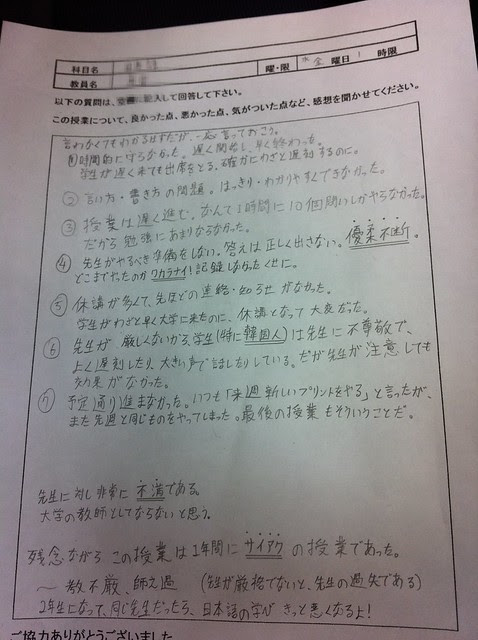 科目名
教員名
曜・限
水 金 曜日 1 時限
以下の質問は、 記入して回答して下さい。
この授業について、良かった点、悪かった点、気がついた点など、感想を聞かせてください。
言わなくてもわかるはずだが、一応言っておこう。
① 時間的に守らなかった。遅く開始し、早く終わった。
学生が遅く来ても出席をとる。確かにわざと遅刻するのに。
② 言い方・書き方の問題。はっきり・わかりやすくできなかった。
③ 授業は遅く進む。なんて1時間に10個問いしかやらなかった。
だから勉強にあまりなるなかった。
④ 先生がやるべき準備をしない。答えは正しく出さない。優柔不断。
どこまでやったのかワカラナイ!記録しなかったくせに。
⑤ 休講が多くて、先ほどの連絡・知らせがなかった。
学生がわざと早く大学に来たのに、休講となって大変だった。
⑥ 先生が厳しくないから、学生(特に韓国人)は先生に不尊敬で、
よく遅刻したり、大きい声で話したりしている。だが先生が注意しても
効果がなかった。
⑦ 予定通り進まなかった。いつも「来週新しいプリントをやる」と言ったが、
また先週と同じものをやってしまった。最後の授業もそういうことだ。
先生に対し非常に不満である。
大学の教師としてならないと思う。
残念ながらこの授業は1年間にサイアクの授業であった。
〜教不厳、師之過 (先生が厳格でないと、先生の過失である)
2年生になって、同じ先生だったら、日本語の学がきっと悪くなるよ!
ご協力ありがとうございました